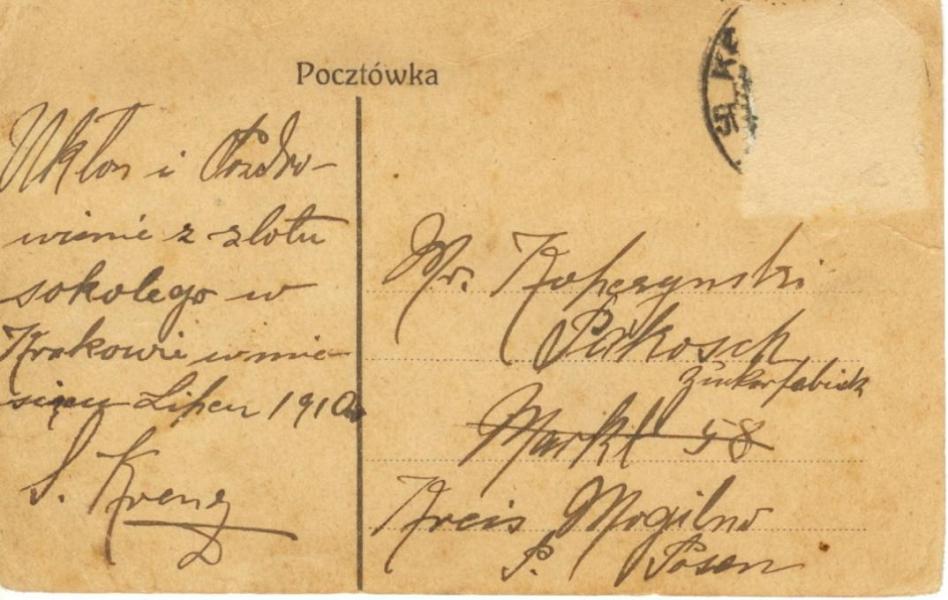 Pocztówka
Ukłon i Pozdro-
wienie z zlotu
sokolego w
Krakowie w mie-
siącu Lipcu 1910
S. Krenz
Mr. Kopczynski
Pakosch
Zuckerfabrik
Markt 58
Kreis Mogilno
P. Posen